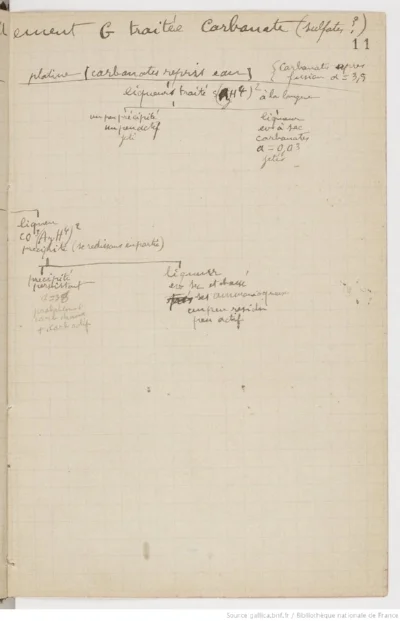 ement G traitée Carbonate (sulfates?)
11
platine (carbonates repris eau
{ Carbonates après
fusion α = 3,3
liqueurs traité S(AzH⁴)² à la longue
un peu précipité
un peu actif
jeté
liqueur
ev à sec
carbonates
α = 0,03
jetés
liqueur
CO³(AzH⁴)²
précipité (se redissous en partie)
précipité
persistant
liqueur
ev sec et chassé
sels ammoniaques
un peu residu
peu actif
Source gallica.bnf.fr / Bibliothèque nationale de France